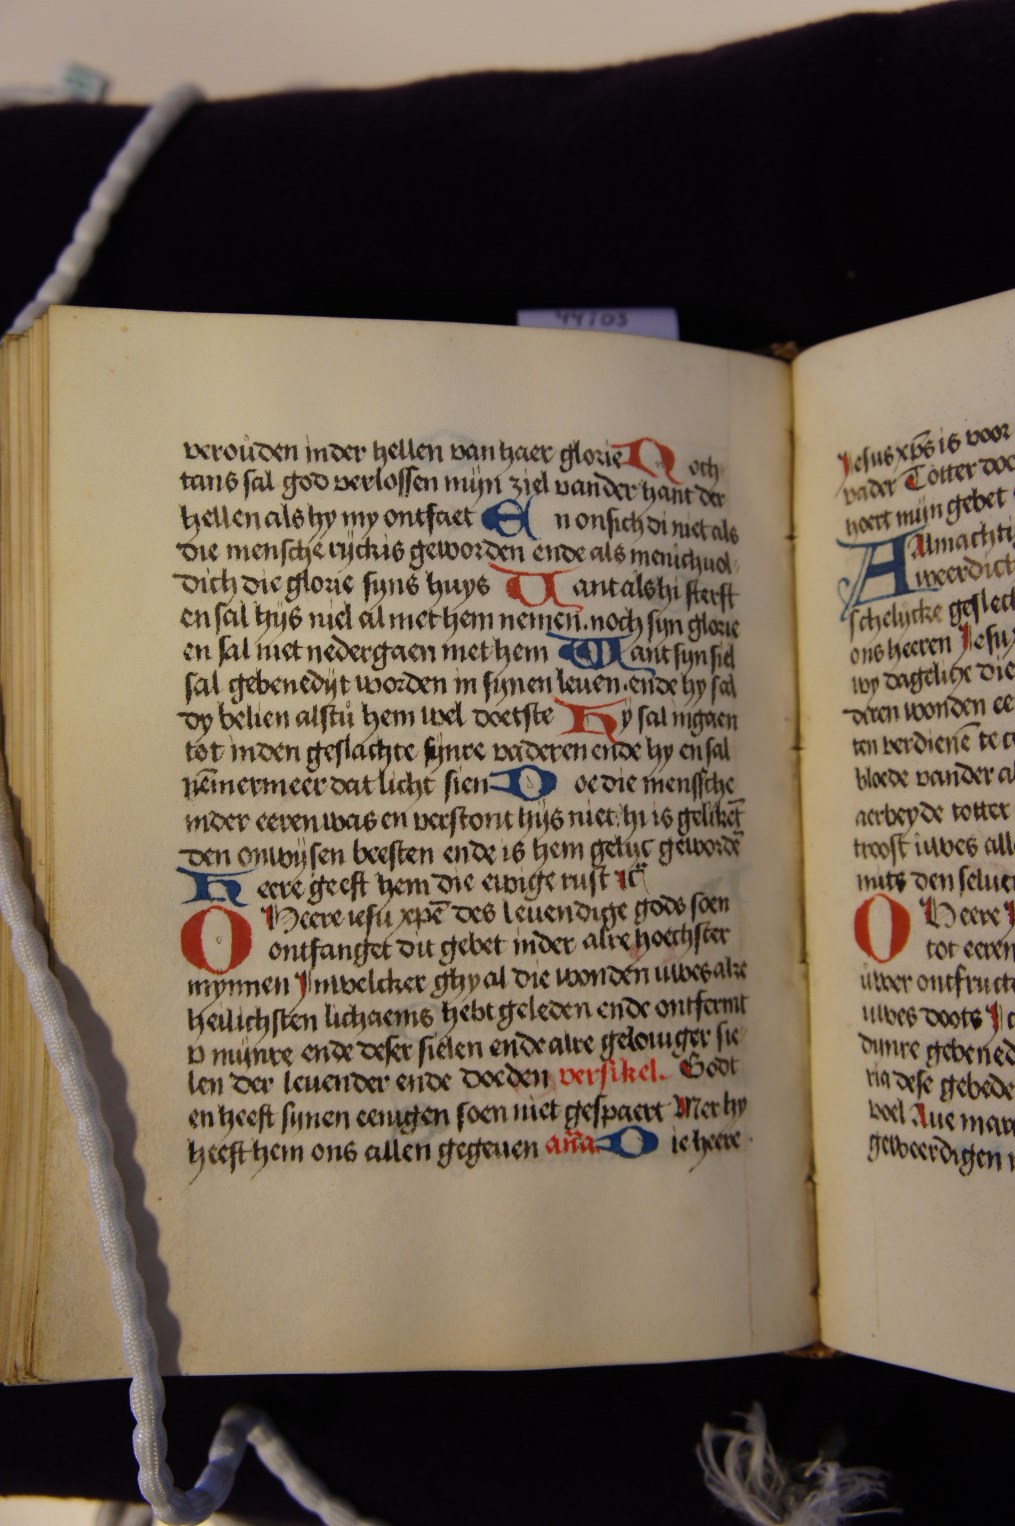 44103
verouden inder hellen van haer glorie Noch
tans sal god verlossen mijn ziel vander hant der
hellen als hy my ontfaet En onsich di niet als
die mensche rijck is geworden ende als menichuol
dich die glorie syns huys Want als hi sterft
en sal hijs niet al met hem nemen. noch syn glorie
en sal niet nedergaen met hem Want syn siel
sal gebenedijt worden in synen leuen. ende hy sal
dy belien alstu hem wel doetste Hy sal ingaen
tot inden geslachte synre vaderen ende hy en sal
nēmermeer dat licht sien Doe die menssche
inder eeren was en verstont hijs niet. hi is gelikēt
den onwijsen beesten ende is hem gelijc gewordē
Heere geeft hem die ewige rust
O Heere iesu xpē des leuendige gods soen
ontfanget dit gebet inder alre hoechster
mynnen Inwelcker ghy al die wonden uwes alre
heilichsten lichaems hebt geleden ende ontfermt
v mijnre ende deser sielen ende alre gelouiger sie
len der leuender ende doeden versikel. Godt
en heeft synen eenigen soen niet gespaert Mer hy
heeft hem ons allen gegeuen Die heere
Jesus xp̄s is voor
vader Totter
hoert mijn gebet
Almachti
weerdich
schelijcke
ons heeren Jesu
wy dagelicxe die
deren wonden
ten verdienē te
bloede vander
aerbeyde totter
troost iuwes
mits den
O Heere
tot eeren
uwer
uwes doots
dijnre
ria dese gebede
wel Aue
geweerdigen